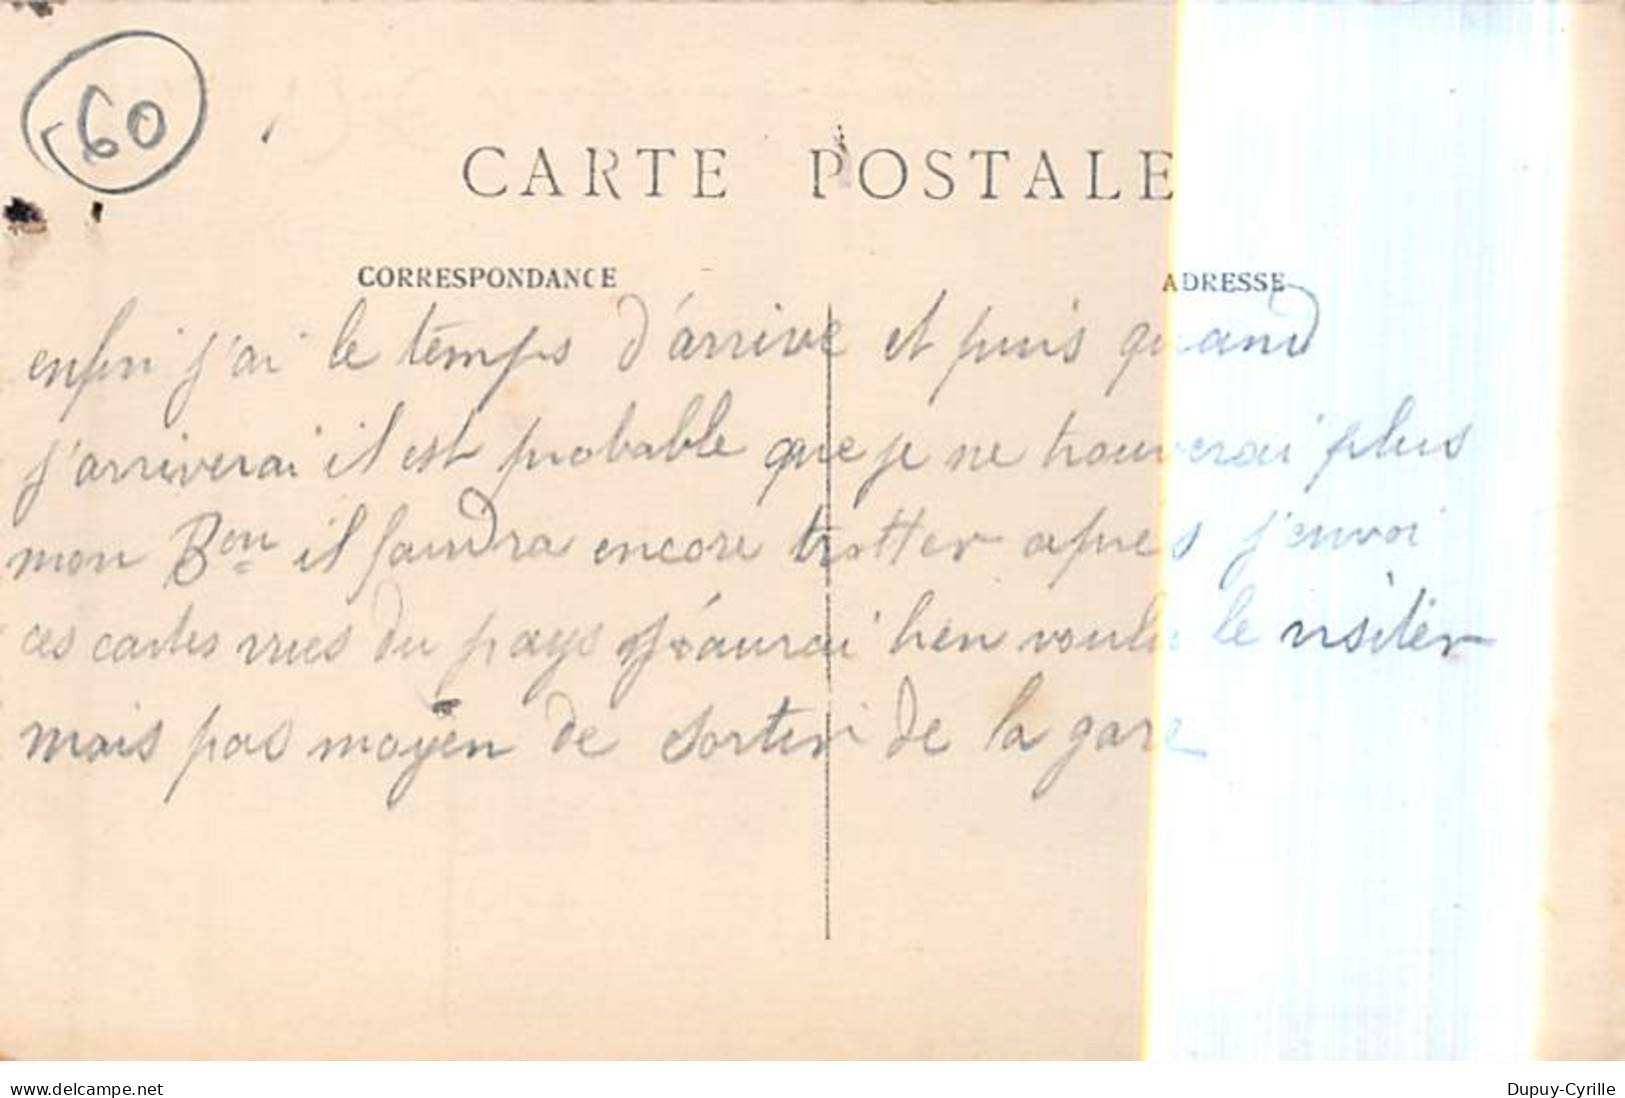 60
CARTE POSTALE
CORRESPONDANCE
ADRESSE
enfin j'ai le temps d'arrive et puis quand
j'arriverai il est probable que je ne trouverai plus
mon Bon il faudra encore trotter après j'envoi
ces cartes vues du pays j'aurai bien voulu le visiter
mais pas moyen de sortir de la gare
www.delcampe.net
Dupuy-Cyrille